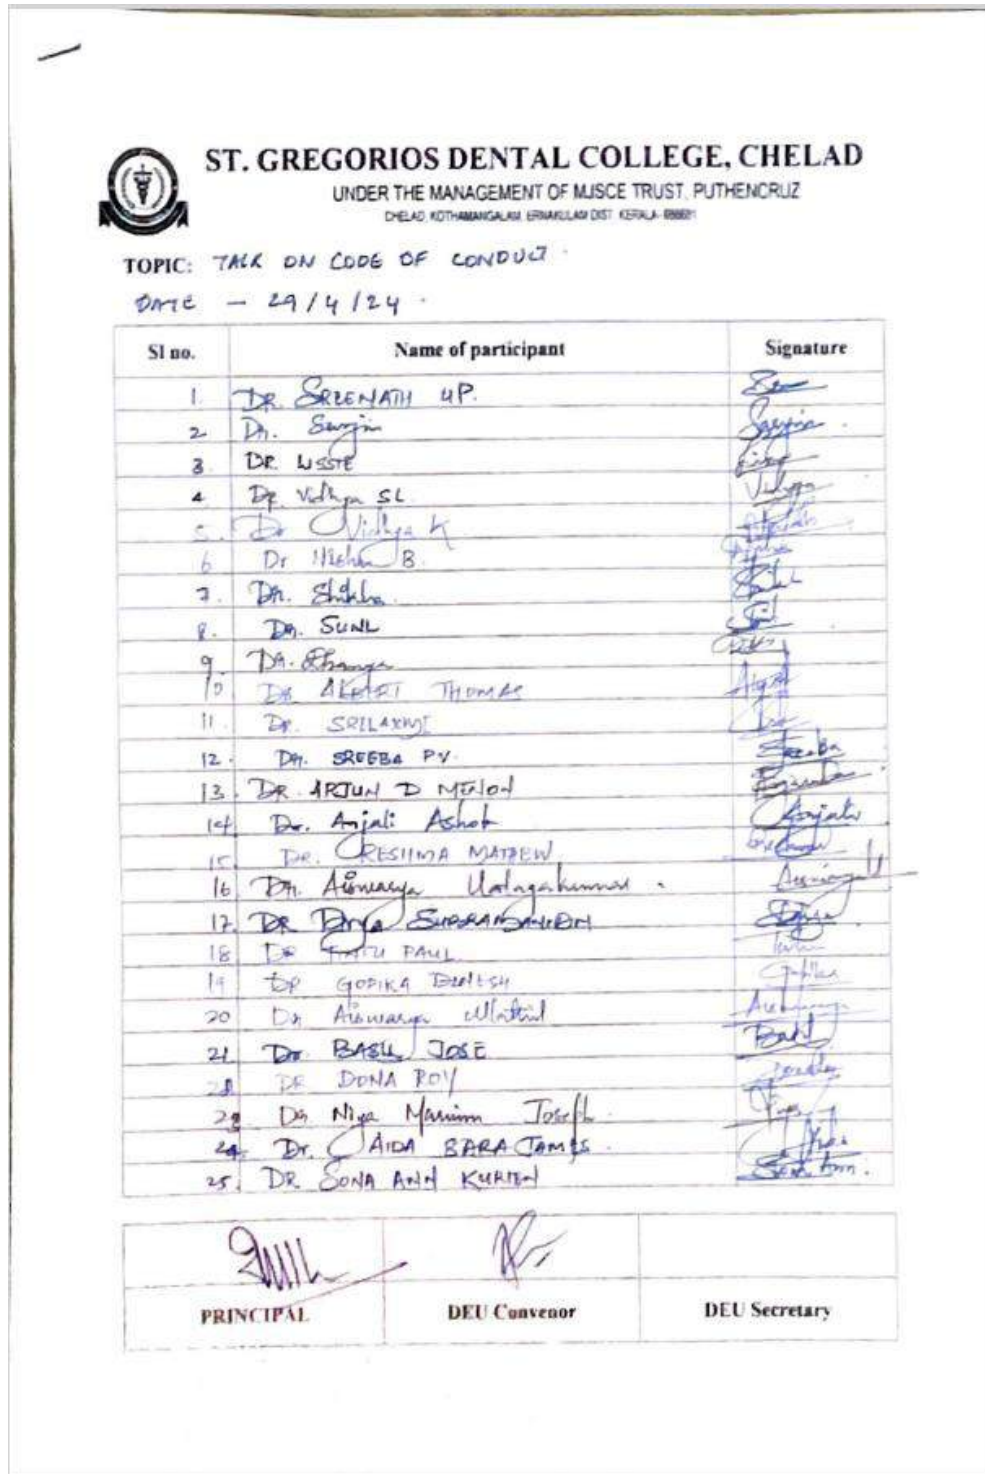 ST. GREGORIOS DENTAL COLLEGE, CHELAD
UNDER THE MANAGEMENT OF MJSCE TRUST, PUTHENCRUZ
CHELAD, KOTHAMANGALAM, ERNAKULAM DIST. KERALA- 686681
TOPIC: TALK ON CODE OF CONDUCT
DATE - 29/4/24
Sl no. Name of participant Signature
1. DR. SREENATH
2 Dr.
3 DR LISSIE
4 Dr. Vidhya SL Vidhya
5. Dr Vidhya K
6 Dr Nisha B.
7. Dr. Shikha
8. Dr. SUNIL
9 Dr. Dhanya
10 Dr ALBERT THOMAS
11. Dr. SRILAXMI
12. Dr. SREEBA PV. Sreeba
13. DR. ARJUN D MENON
14 Dr. Anjali Ashok Anjali
15 DR. RESHMA MATHEW
16 Dr. Aiswarya Udayakumar
17. DR Divya
18 Dr PAUL
19 DR GOPIKA DINESH Gopika
20 Dr Aiswarya
21 Dr. BASIL JOSE Basil
22 DR DONA ROY
23 Dr Niya Mariam Joseph
24. Dr. AIDA SARA JAMES
25. DR SONA ANN KURIEN Sona Ann.
PRINCIPAL DEU Convenor DEU Secretary